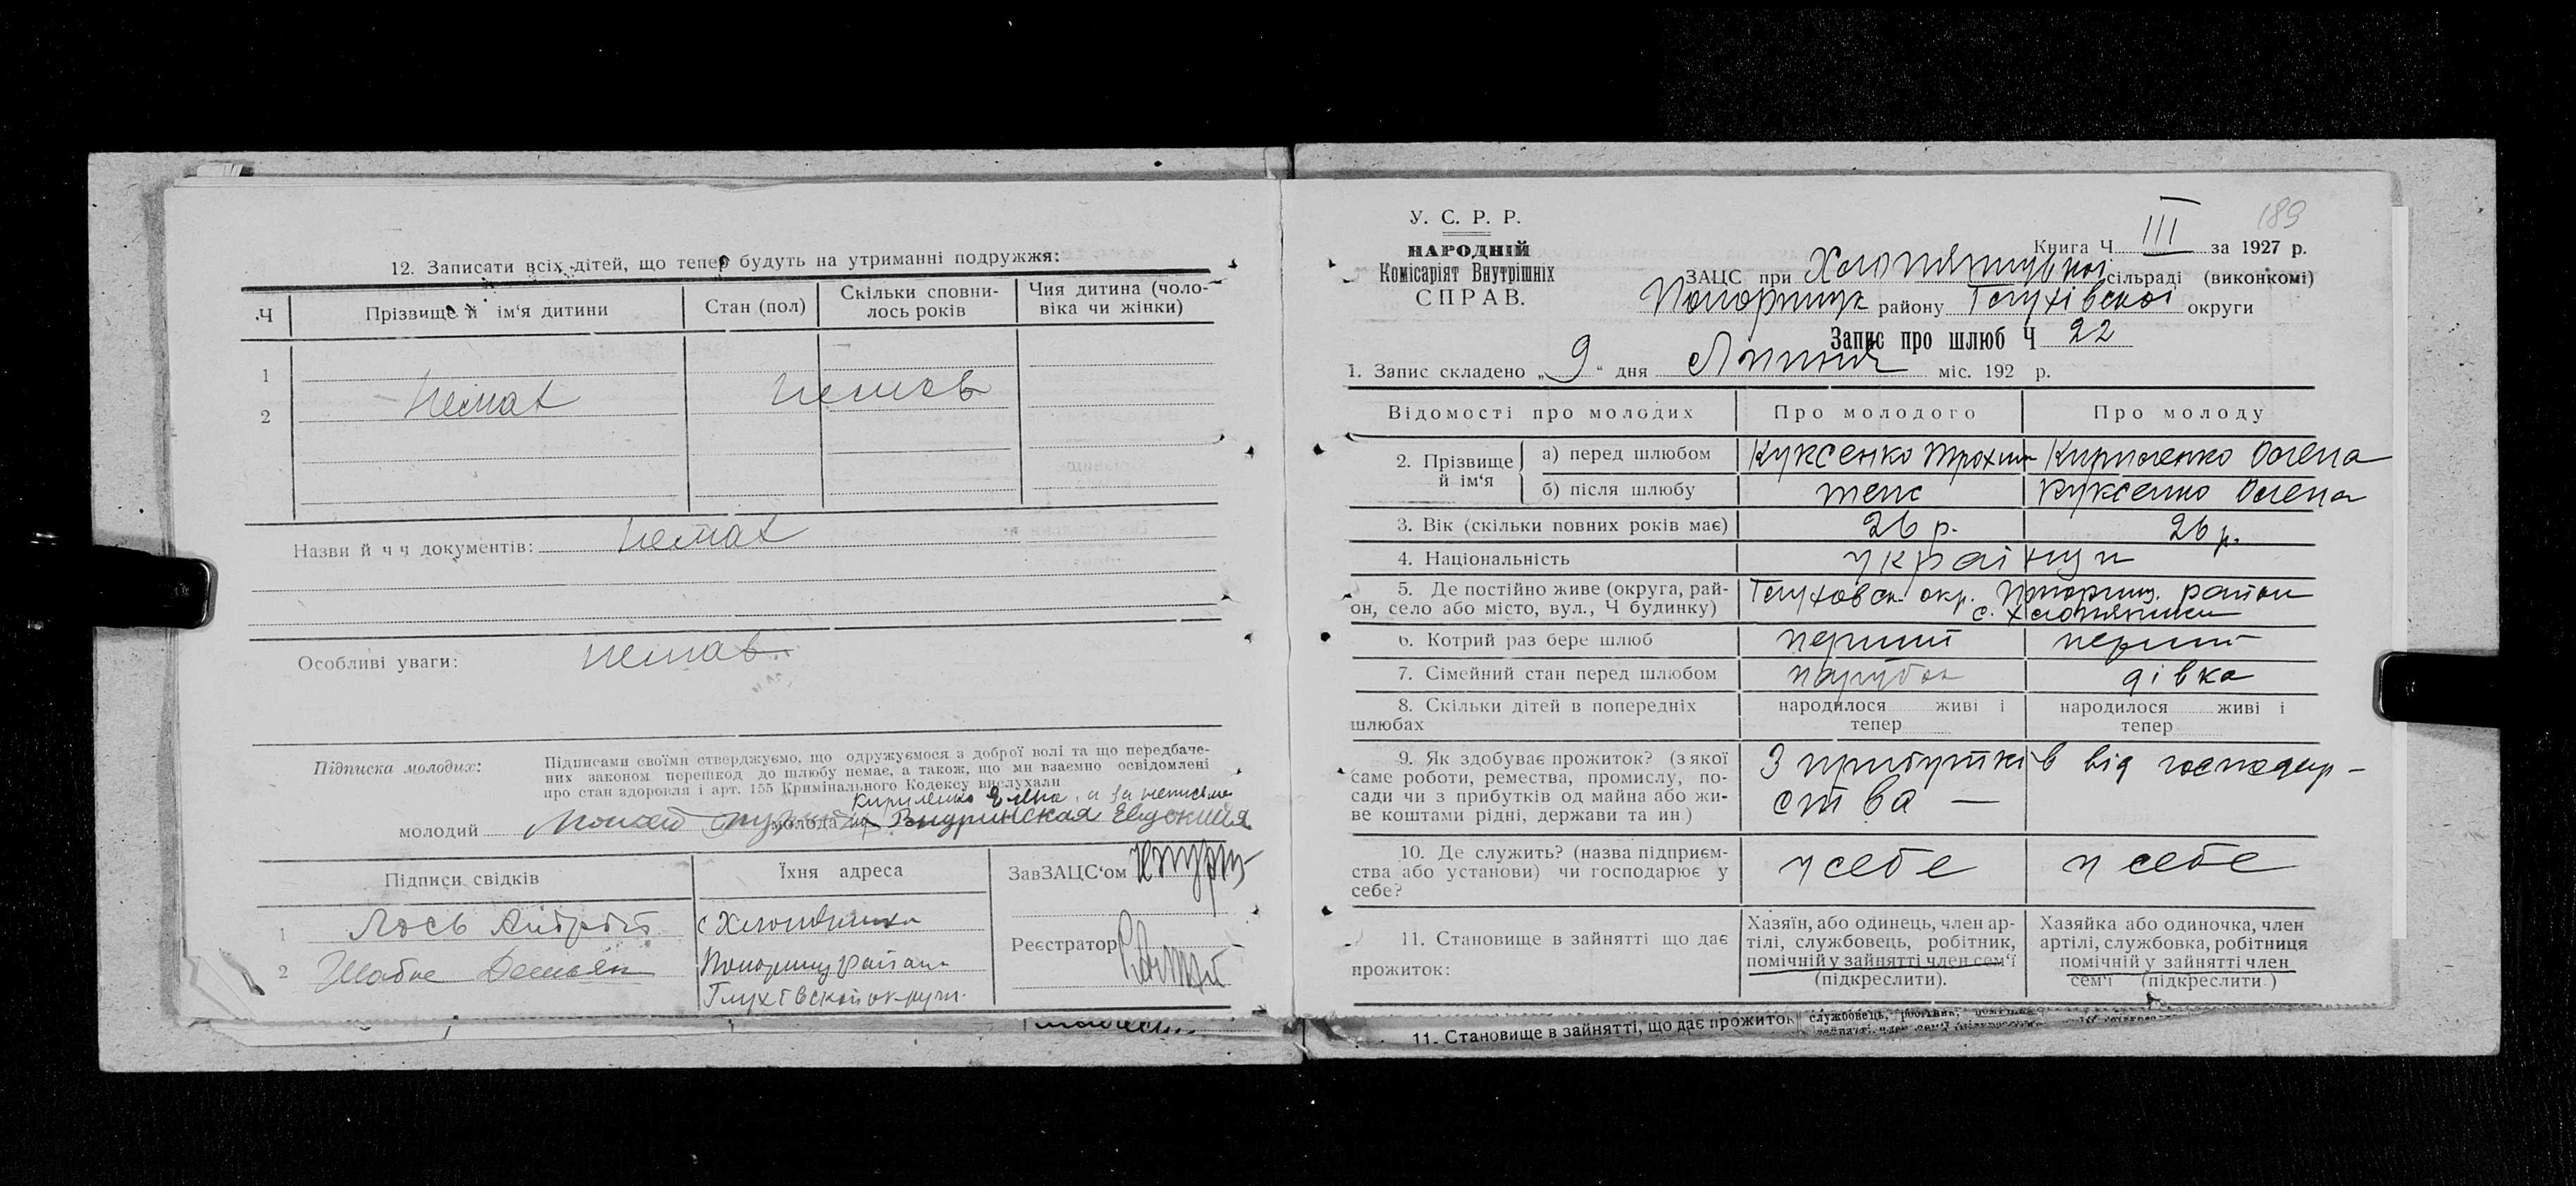 12. Записати всіх дітей, що тепер будуть на утриманні подружжя:
Ч
Прізвище й ім‘я дитини
Стан (пол)
Скільки сповни-
лось років
Чия дитина (чоло-
віка чи жінки)
1
2
Немає
немає
Назви й ч ч документів: Немає
Особливі уваги: немає
Підписка молодих:
Підписами своїми стверджуємо, що одружуємося з доброї волі та що передбаче-
них законом перешкод до шлюбу немає, а також, що ми взаємно освідомлені
про стан здоровля і арт. 155 Кримінального Кодексу вислухали
Кириленко Элена, а за неписьм
молодий молода Евдокийя
Підписи свідків
Їхня адреса
ЗавЗАЦС‘ом
Реєстратор
1 Лось Андрей
с Хлопяники
2 Шабае Демьян
Понорниц района
Глухівской округи
У. С. Р. Р.
НАРОДНІЙ
Комісаріят Внутрішніх
СПРАВ.
189
Книга Ч III за 1927 р.
ЗАЦС при сільраді (виконкомі)
Понорницк району Глухівської округи
Запис про шлюб Ч 22
1. Запис складено „ 9 “ дня Липня міс. 192 р.
Відомості про молодих
Про молодого
Про молоду
2. Прізвище й ім‘я
а) перед шлюбом
Куксенко Трохим
Кириленко Олена
б) після шлюбу
теж
Куксенко Олена
3. Вік (скільки повних років має)
26 р.
26 р.
4. Національність
українци
5. Де постійно живе (округа, рай-
он, село або місто, вул., Ч будинку)
Глуховск. окр. Понорниц. район
с. Хлопяники
6. Котрий раз бере шлюб
перший
перший
7. Сімейний стан перед шлюбом
парубок
дівка
8. Скільки дітей в попередніх
шлюбах
народилося живі і
тепер
народилося живі і
тепер
9. Як здобуває прожиток? (з якої
саме роботи, ремества, промислу, по-
сади чи з прибутків од майна або жи-
ве коштами рідні, держави та ин.)
З прибутків від господар-
ства —
10. Де служить? (назва підприєм-
ства або установи) чи господарює у
себе?
у себе
у себе
11. Становище в зайнятті що дає
прожиток:
Хазяїн, або одинець, член ар-
тілі, службовець, робітник,
помічній у зайнятті член сем‘ї
(підкреслити).
Хазяйка або одиночка, член
артілі, службовка, робітниця
помічній у зайнятті член
сем‘ї (підкреслити.)
11. Становище в зайнятті, що дає прожиток
службовець, робітник,